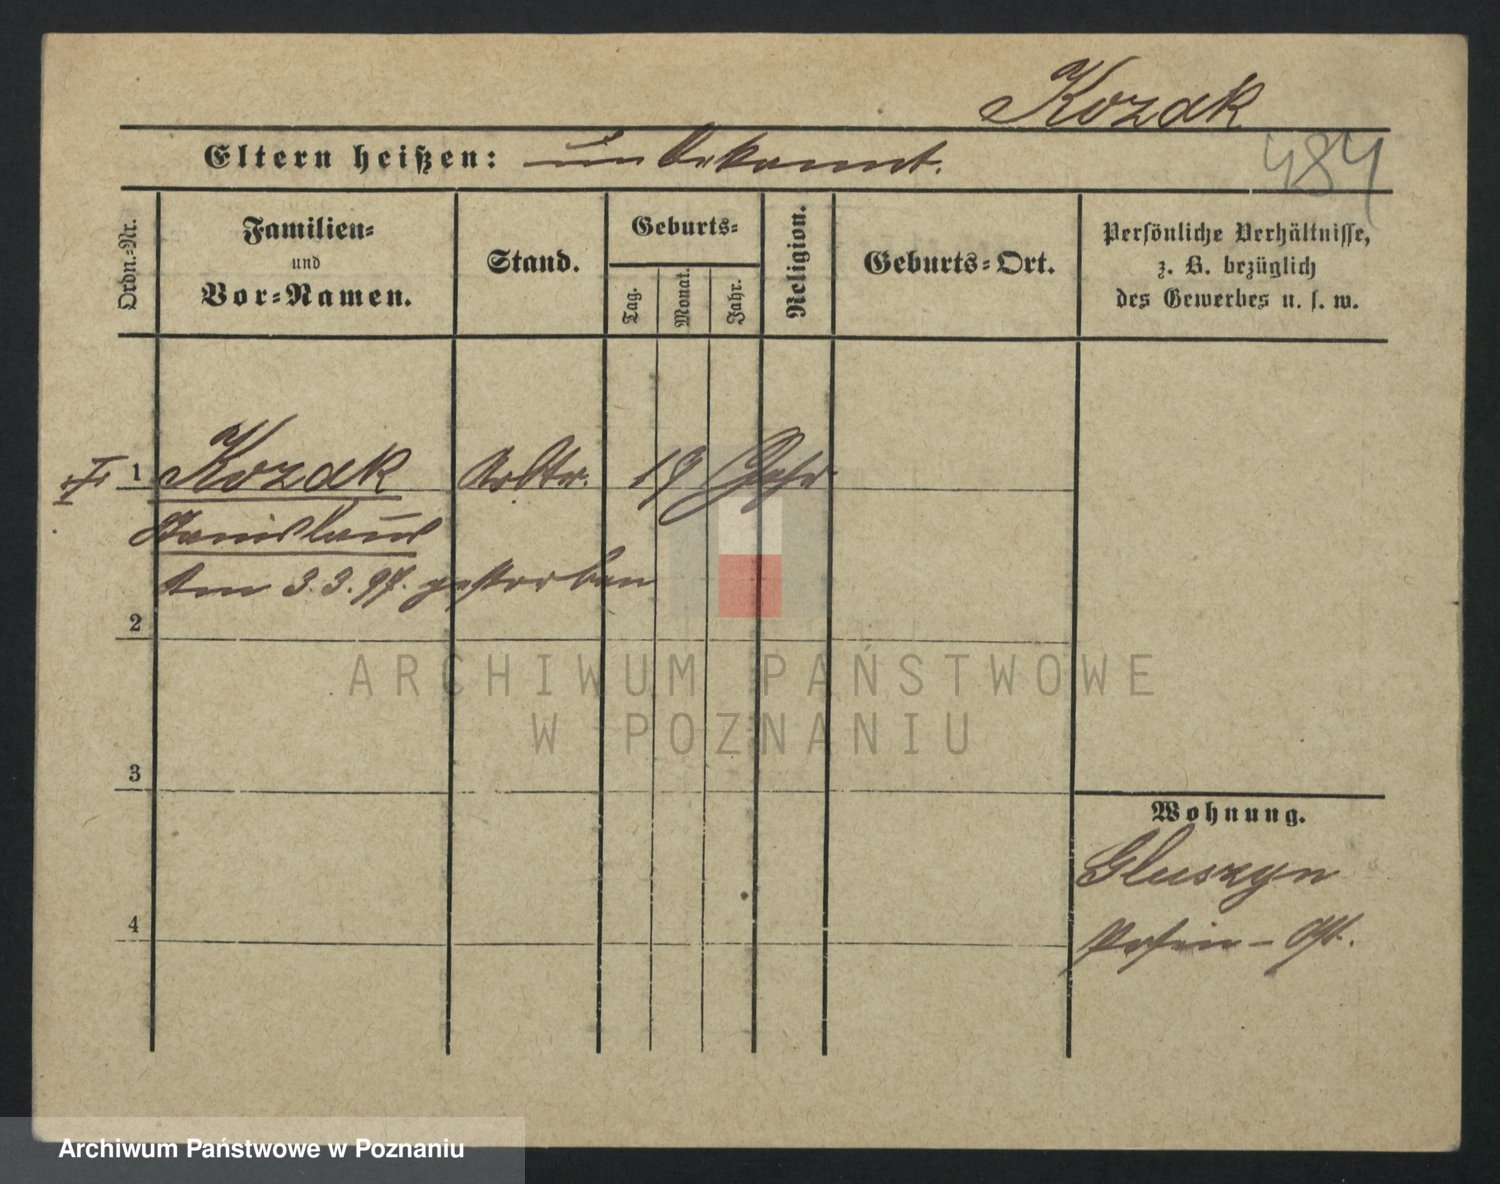 Kozak
484
Eltern heißen: unbekannt.
Ordn.-Nr.
Familien-
und
Vor-Namen.
Stand.
Geburts-
Tag.
Monat.
Jahr.
Religion.
Geburts-Ort.
Persönliche Verhältnisse,
z. B. bezüglich
des Gewerbes u. s. w.
1 Kozak Arbtr. 19 Jahr
Stanislaus
Am 3.3.97. gestorben
2
ARCHIWUM PAŃSTWOWE
W POZNANIU
3
Wohnung.
Gluszyn
4
Posen - Ost.
Archiwum Państwowe w Poznaniu